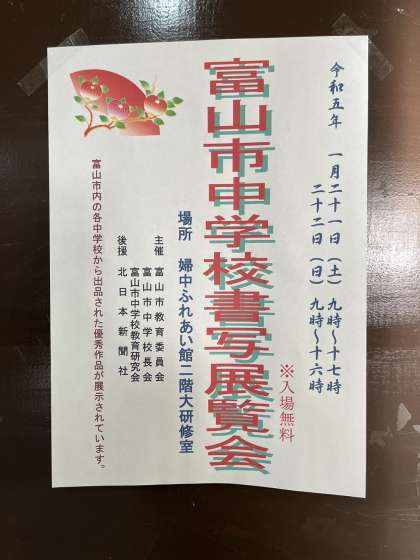 令和五年　一月二十一日（土）九時〜十七時
二十二日（日）九時〜十六時
富山市中学校書写展覧会
※入場無料
場所　婦中ふれあい館二階大研修室
主催　富山市教育委員会
富山市中学校長会
富山市中学校教育研究会
後援　北日本新聞社
富山市内の各中学校から出品された優秀作品が展示されています。